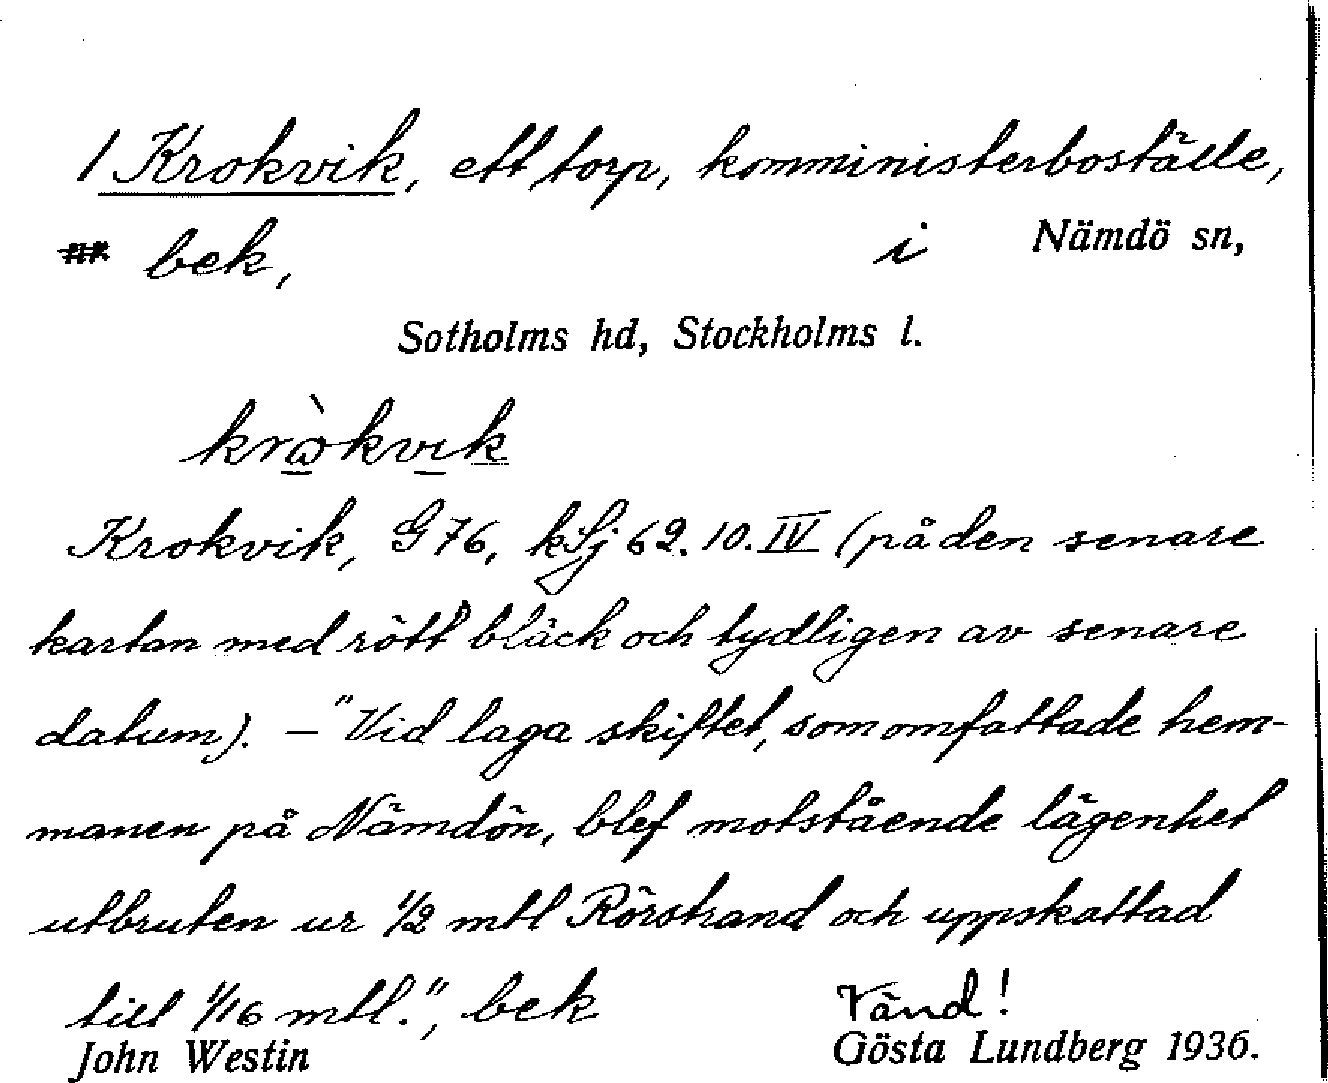 1 Krokvik, ett torp, komministerboställe,
bek, i Nämdö sn,
Sotholms hd, Stockholms l.
kròkvik
Krokvik, G 76, kSj 62.10.IV (på den senare
kartan med rött bläck och tydligen av senare
datum). – "Vid laga skiftet, som omfattade hem-
manen på Nämdön, blef motstående lägenhet
utbruten ur 1/2 mtl Rörstrand och uppskattad
till 1/16 mtl.", bek Vänd!
John Westin Gösta Lundberg 1936.